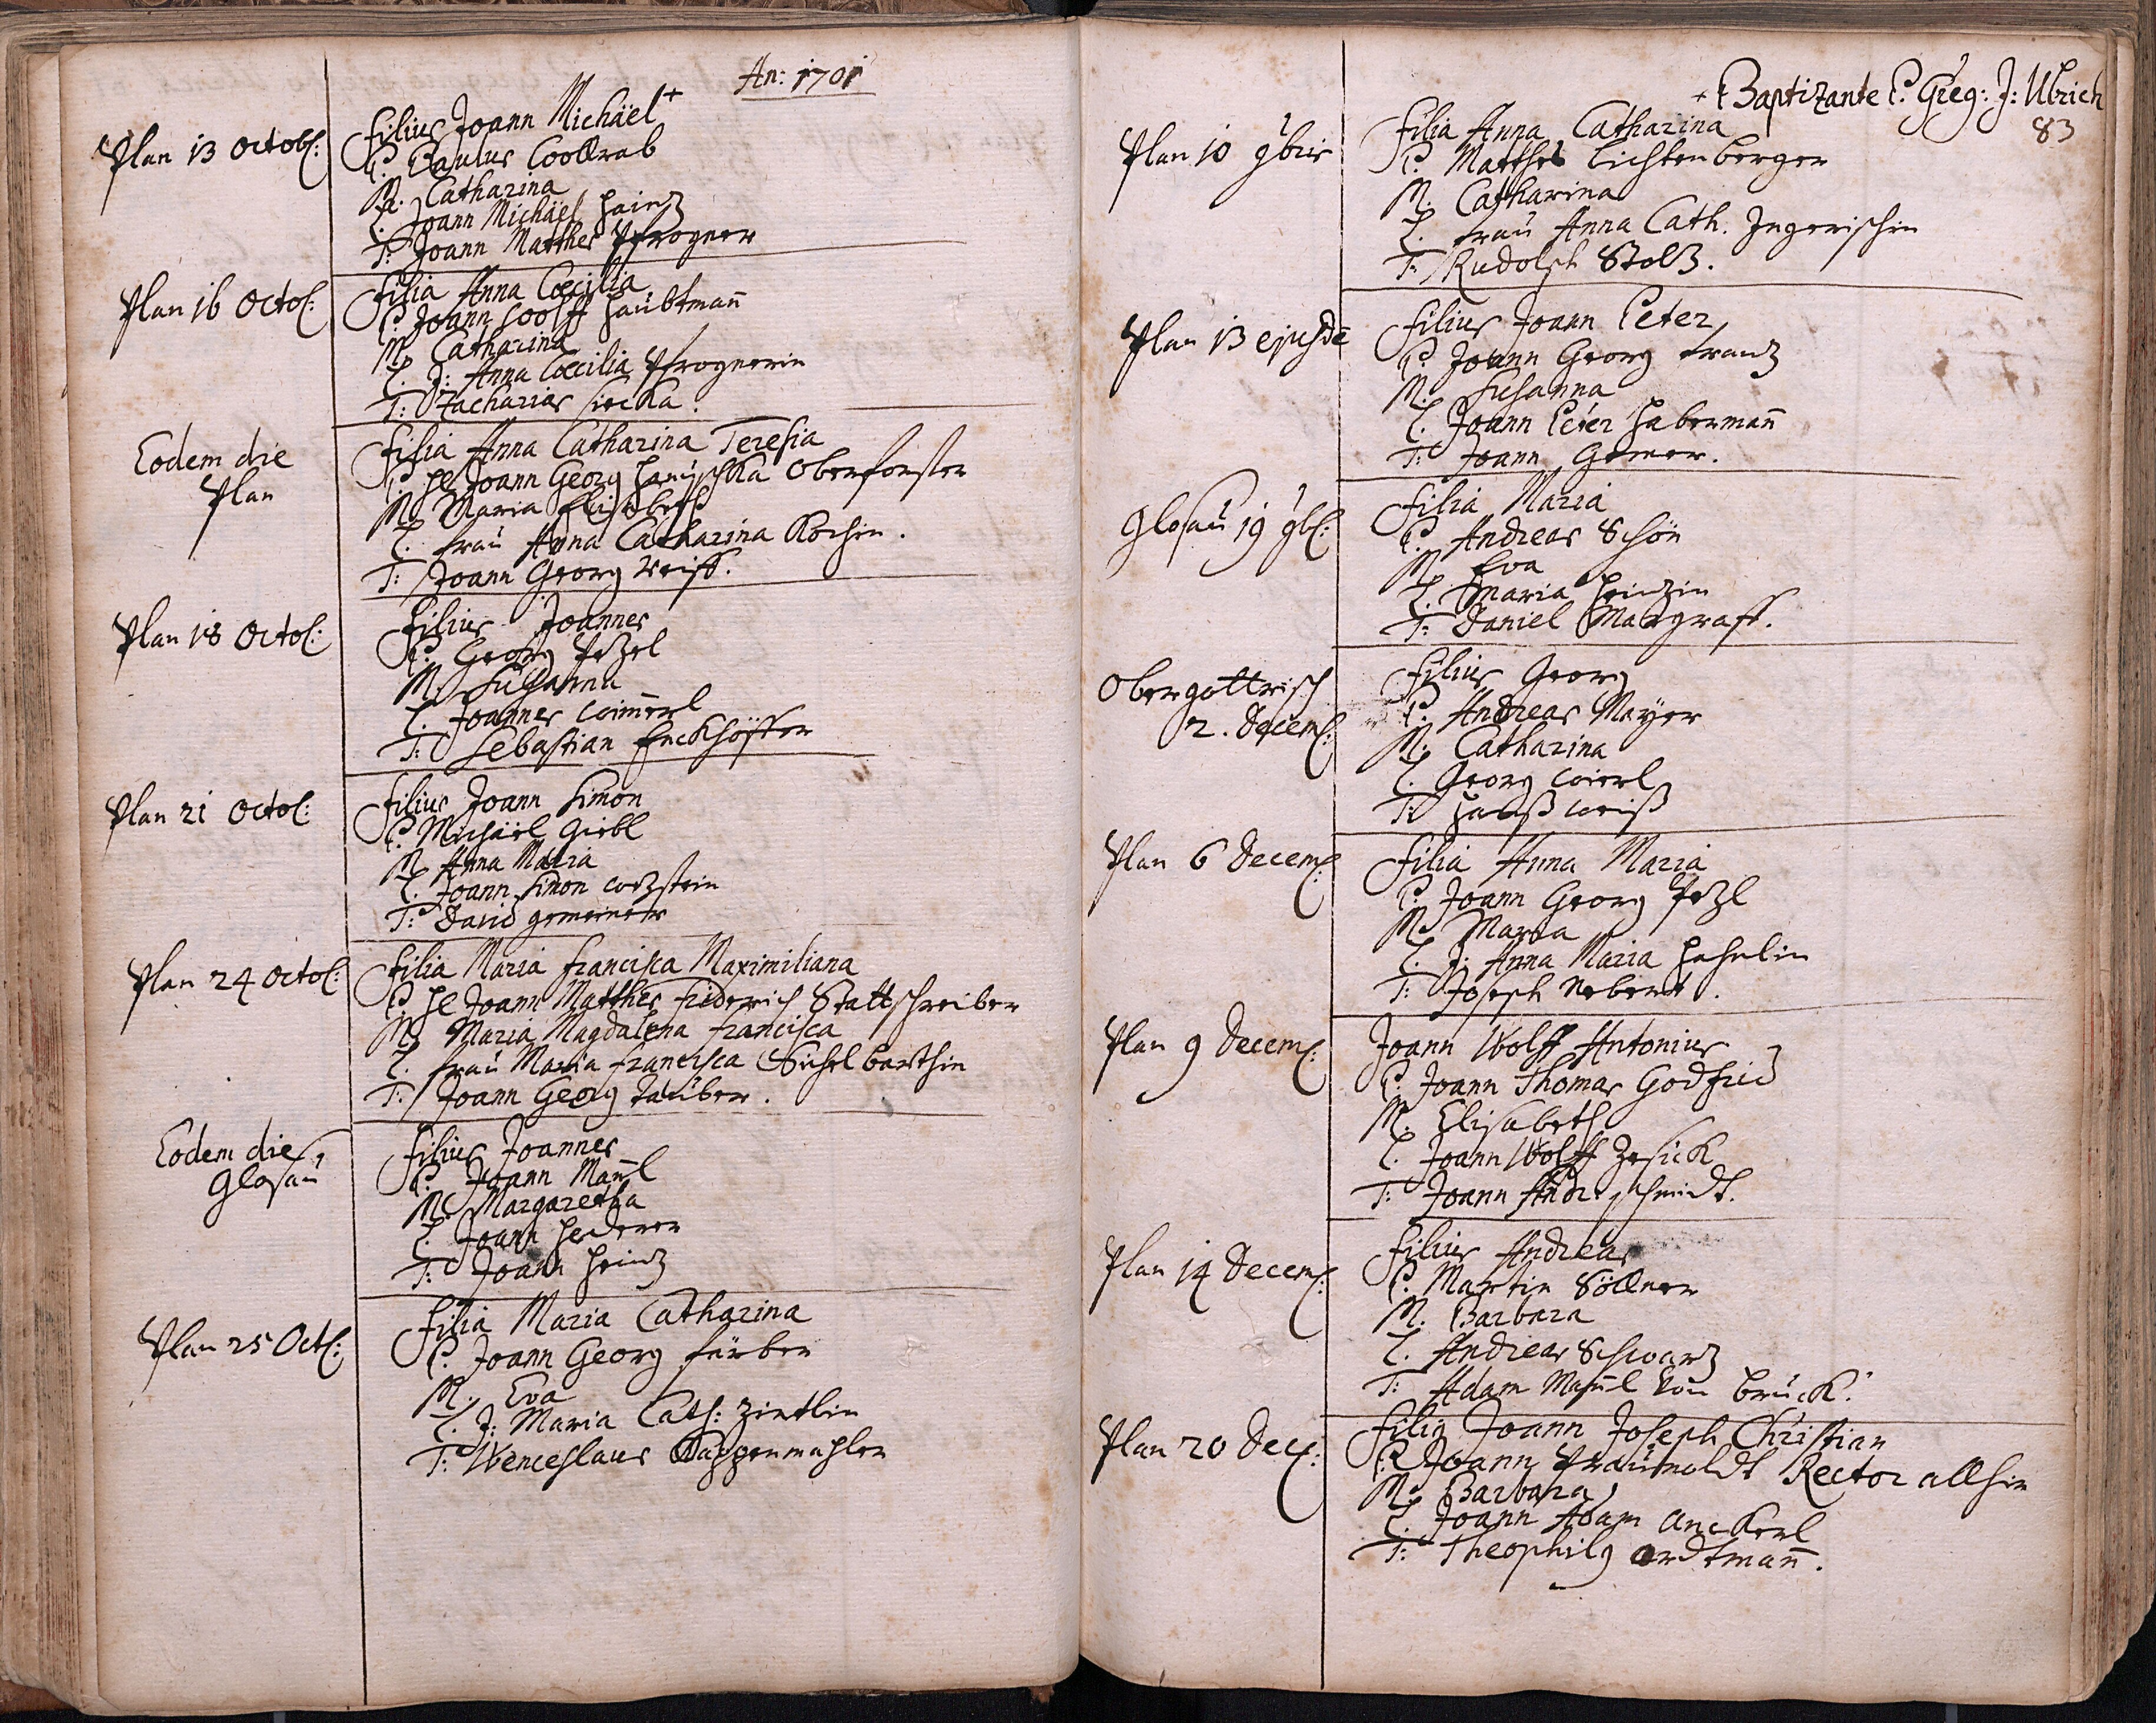 An: 1701
Plan 13 Octob:
Filius Joann Michäel +
P. Paulus Woollrab
M. Catharina
L. Joann Michäel Haintz
T: Joann Matthes Pfrogner
Plan 16 Octob:
Filia Anna Cæcilia
P. Joann Wolff Haubtmañ
M. Catharina
L. J: Anna Cæcilia Pfrognerin
T: Zacharias
Eodem die
Plan
Filia Anna Catharina Teresia
P. He Joann Georg Oberforster
M. Maria Elisabeth
L. Frau Anna Catharina Kochin.
T: Joann Georg Weiss.
Plan 18 Octob:
Filius Joannes
P. Georg Pezel
M. Susanna
L. Joannes Wim̃erl
T: Sebastian Enckhöffer
Plan 21 Octob:
Filius Joann Simon
P. Michäel Giebl
M. Anna Maria
L. Joann Simon
T: David
Plan 24 Octob:
Filia Maria Francisca Maximiliana
P. He Joann Matthes Friderich Stattschreiber
M. Maria Magdalena Francisca
L. Frau Maria Francisca Sichelbarthin
T: Joann Georg Tauber.
Eodem die
Glosau
Filius Joannes
P. Joann Mañl
M. Margaretha
L. Joann Hederer
T: Joann Heintz
Plan 25 Octb:
Filia Maria Catharina
P. Joann Georg Färber
M. Eva
L. J: Maria Cath: Zintlin
T: Wenceslaus Kuppenmahler
+ Baptizante P. Greg: J: Ulrich
83
Plan 10 9bris
Filia Anna Catharina
P. Matthes Lichtenberger
M. Catharina
L. Frau Anna Cath. Ingerischin
T: Rudolph Stoltz.
Plan 13 ejusdē
Filius Joann Peter
P. Joann Georg Frantz
M. Susanna
L. Joann Peter Habermañ
T: Joann Gomer.
Glosau 19 9b:
Filia Maria
P. Andreas Schön
M. Eva
L. Maria Heintzin
T: Daniel Margraff.
Obergottrisch
2. Decem:
Filius Georg
P. Andreas Mayer
M. Catharina
L. Georg Wierl
T: Hanß Weiß
Plan 6 Decem:
Filia Anna Maria
P. Joann Georg Pezl
M. Maria
L. J: Anna Maria Hahnlin
T: Joseph Nebert.
Plan 9 Decem:
Joann Wolff Antonius
P. Joann Thomas Godfrid
M. Elisabeth
L. Joann Wolff Zesick
T: Joann Andre Schmidt.
Plan 14 Decem:
Filius Andreas
P. Martin Söllner
M. Barbara
L. Andreas Schwartz
T: Adam Mañl von Bruck.
Plan 20 Dec:
Filiq Joann Joseph Christian
P. Joann Praunoldt Rector allhir
M. Barbara
L. Joann Adam Anckerl
T: Theophilq Ordtmañ.